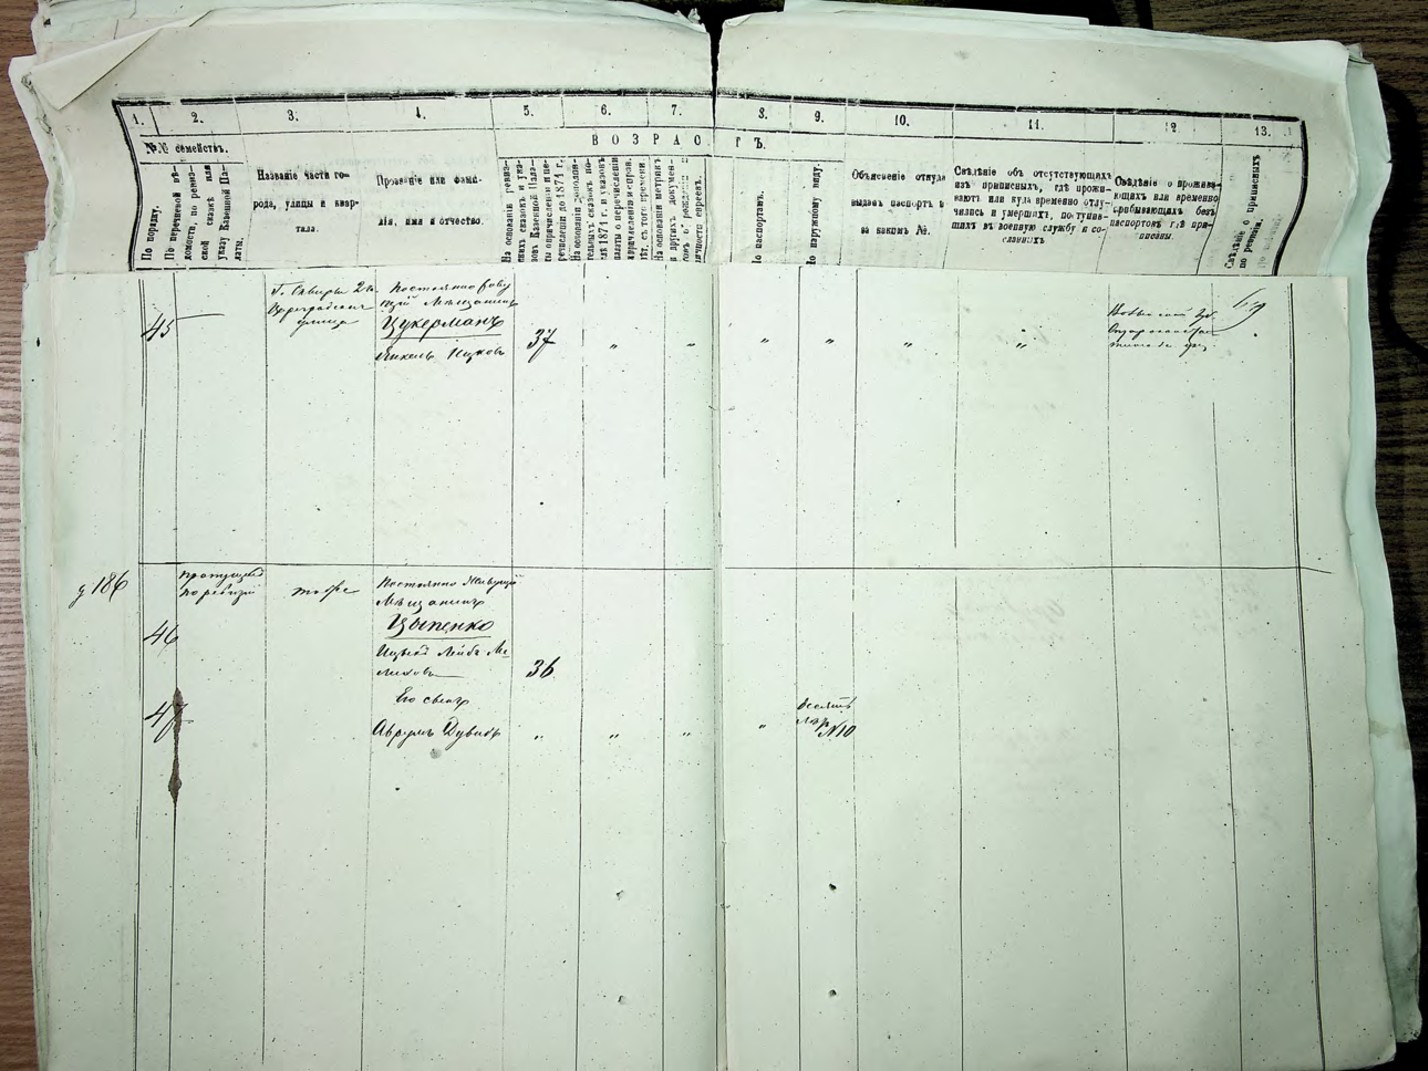 1. 2. 3. 4. 5. 6. 7. 8. 9. 10. 11. 12 13.
№№ семействъ.
По порядку.
По перечневой вѣ-
домости, по ревиз-
ской сказкѣ или
указу Казенной Па-
латы.
Названіе части го-
рода, улицы и квар-
тала.
Прозваніе или фами-
лія, имя и отчество.
ВОЗРАСТЪ.
На основаніи ревиз-
скихъ сказокъ и ука-
зовъ Казенной Пала-
ты о причисленіи и пе-
речисленіи до 1874 г.
На основаніи дополни-
тельныхъ сказокъ по-
слѣ 1874 г. и указовъ
палаты о перечисленіи
и причисленіи и справ.
лѣт. съ того времени.
На основаніи метрикъ
и другихъ докумен-
товъ о рожденіи и
личности евреевъ.
По паспортамъ.
По наружному виду.
Объясненіе откуда
выданъ паспортъ и
за какимъ №.
Свѣдѣніе объ отсутствующихъ
изъ приписныхъ, гдѣ прожи-
ваютъ или куда временно отлу-
чились и умершихъ, поступив-
шихъ въ военную службу и со-
сланныхъ
Свѣдѣніе о прожива-
ющихъ или временно
прибывающихъ безъ
паспортовъ гдѣ при-
писаны.
Свѣдѣніе о приписныхъ
по ревизіи.
45
Г. Сквира 2й
улица
Мѣщанинъ
Цукерманъ
37 " " " " " "
д 186
46
пропущенъ
по ревизіи
тоже
Постоянно живущій
Мѣщанинъ
Цыпенко
Лейба Ме-
36
47
Его сватъ
Аврумъ Дувидъ
" " " "
№10